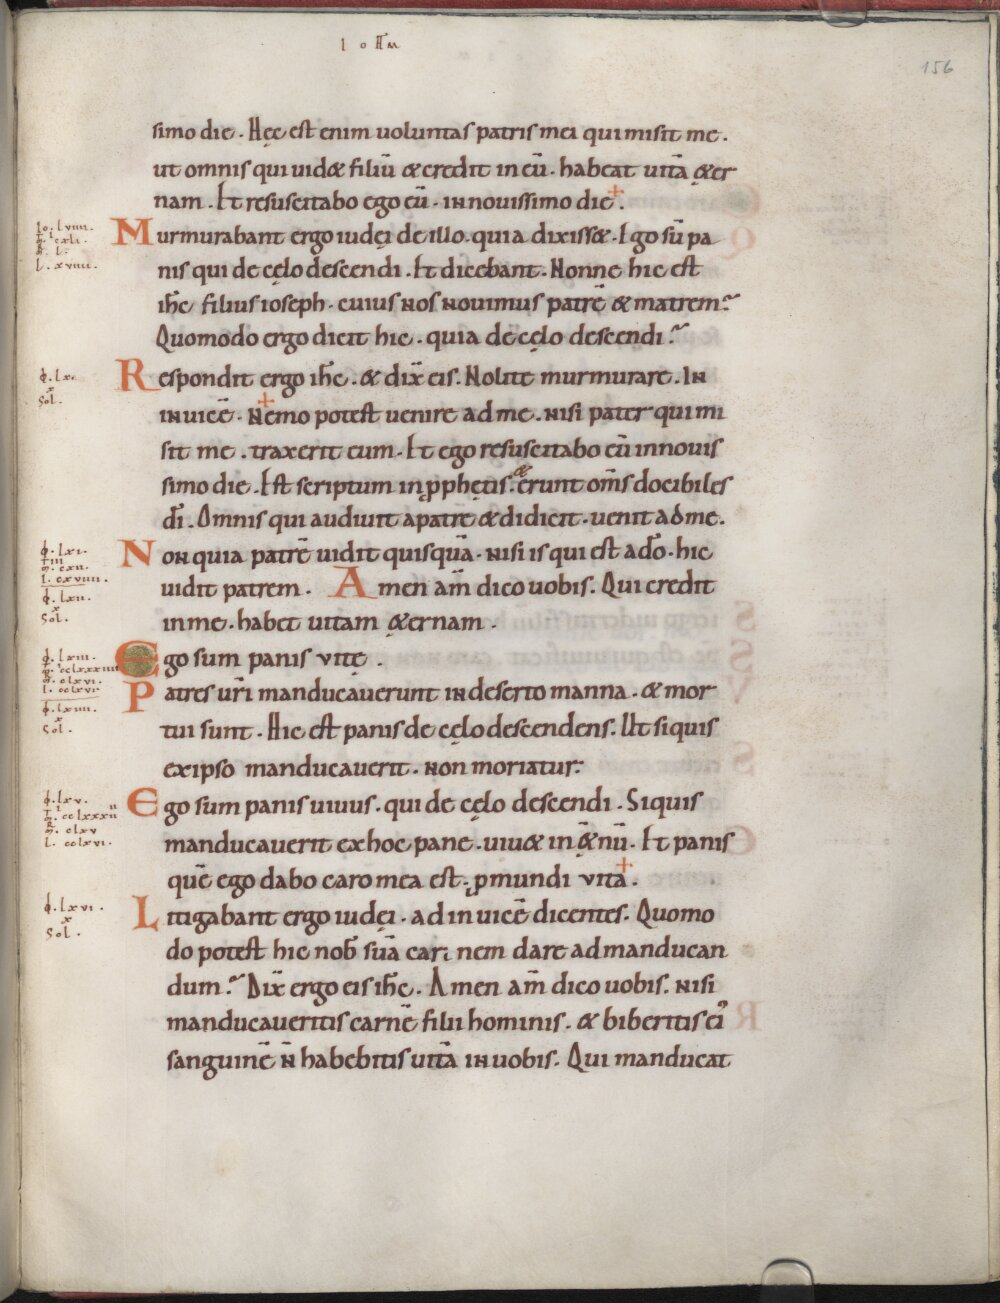 IOHAN
156
simo die. Hęc est enim uoluntas patris mei qui misit me.
ut omnis qui uid& filiū & credit in eū. habeat uitā ę&er
nam. Et resuscitabo ego eū. in nouissimo die.
Murmurabant ergo iudęi de illo. quia dixiss&. Ego sū pa
nis qui de cęlo descendi. Et dicebant. Nonne hic est
ih̄c filius ioseph. cuius nos nouimus patrē & matrem?
Quomodo ergo dicit hic. quia de cęlo descendi?
Respondit ergo ih̄c. & dix̄ eis. Nolite murmurare. In
inuicē. Nemo potest uenire ad me. nisi pater qui mi
sit me. traxerit eum. Et ego resuscitabo eū in nouis
simo die. Est scriptum in ꝓph&is. & erunt om̄s docibiles
dī. Omnis qui audiuit a patre & didicit. uenit ad me.
Non quia patrē uidit quisquā. nisi is qui est a dō. hic
uidit patrem. Amen am̄ dico uobis. Qui credit
in me. habet uitam ę&ernam.
Ego sum panis vitę.
Patres ur̄i manducauerunt in deserto manna. & mor
tui sunt. Hic est panis de cęlo descendens. Ut siquis
ex ipso manducauerit. non moriatur.
Ego sum panis uiuus. qui de cęlo descendi. Siquis
manducauerit ex hoc pane. uiu& in ę&nū. Et panis
quē ego dabo caro mea est. ꝓ mundi vita.
Litigabant ergo iudęi. ad inuicē dicentes. Quomo
do potest hic nob̄ suā carnem dare ad manducan
dum? Dix̄ ergo eis ih̄c. Amen am̄ dico uobis. nisi
manducaueritis carnē filii hominis. & biberitis ei᾿
sanguinē n̄ habebitis uitā in uobis. Qui manducat
Io. lviiii.
l. xviiii.
ϕ. lx.
x
Sol.
ϕ. lxi.
m. cxii.
l. cxviiii.
ϕ. lxii.
x
Sol.
ϕ. lxiii.
l. cclxvi
ϕ. lxiiii.
x
Sol.
ϕ. lxv.
m. clxv
l. cclxvi.
ϕ. lxvi.
x
Sol.